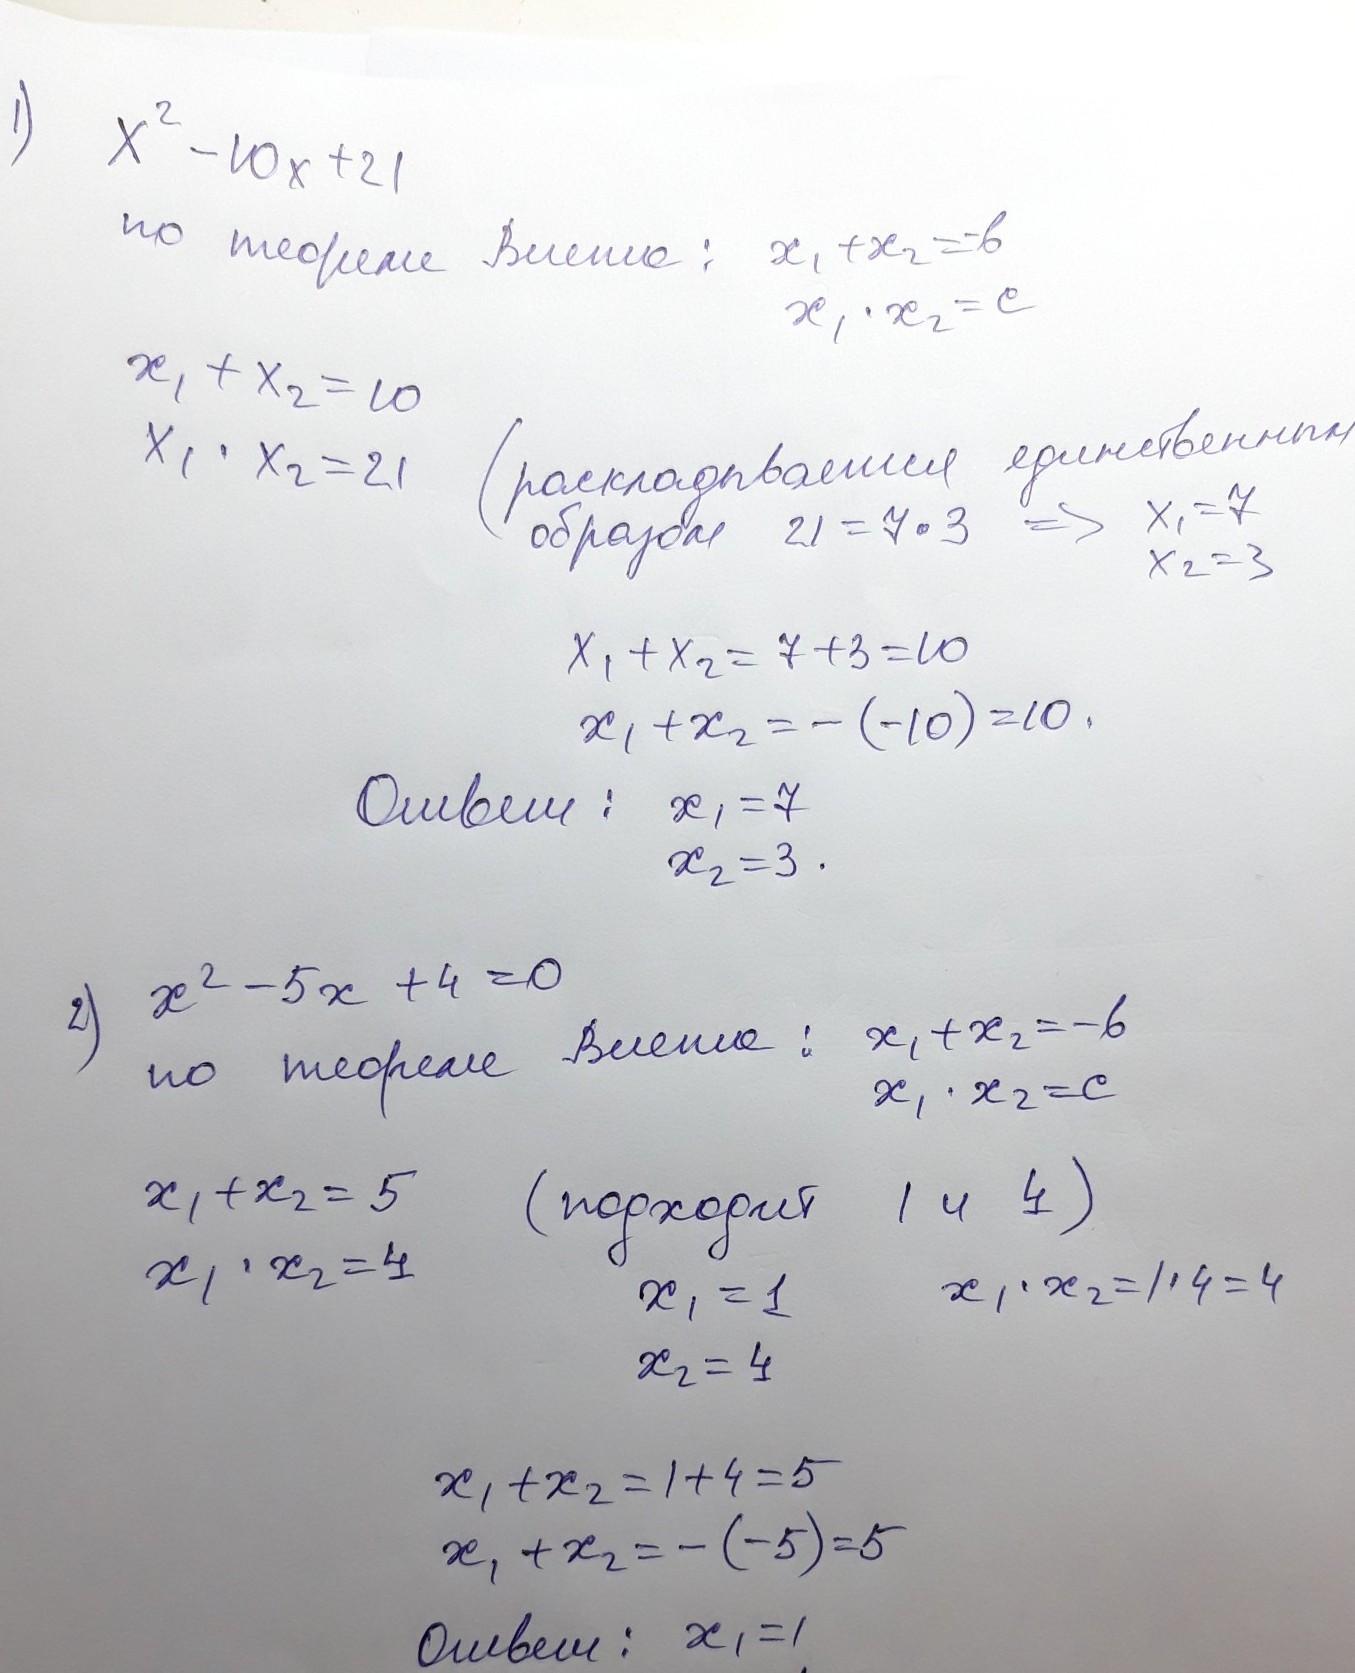 1) x² -10x +21
по теореме Виета: x₁ + x₂ = -b
x₁ · x₂ = c
x₁ + x₂ = 10
x₁ · x₂ = 21 (раскладывается единственным
образом 21 = 7·3 => x₁ = 7
x₂ = 3
x₁ + x₂ = 7+3 = 10
x₁ + x₂ = -(-10) = 10.
Ответ: x₁ = 7
x₂ = 3.
2) x² -5x +4 = 0
по теореме Виета: x₁ + x₂ = -b
x₁ · x₂ = c
x₁ + x₂ = 5 (подходит 1 и 4)
x₁ · x₂ = 4
x₁ = 1 x₁ · x₂ = 1·4 = 4
x₂ = 4
x₁ + x₂ = 1+4 = 5
x₁ + x₂ = -(-5) = 5
Ответ: x₁ = 1